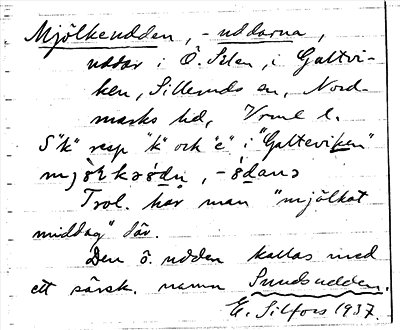 Mjölkeudden, -uddarna,
uddar i Ö. Silen, i Galtvi-
ken, Silleruds sn, Nord-
marks hd, Vrml l.
S "k" resp "k" och "e" i "Galteviken"
Trol. har man "mjölkat
middag" där.
Den ö. udden kallas med
ett särsk. namn Sundsudden.
E. Silfors 1937.